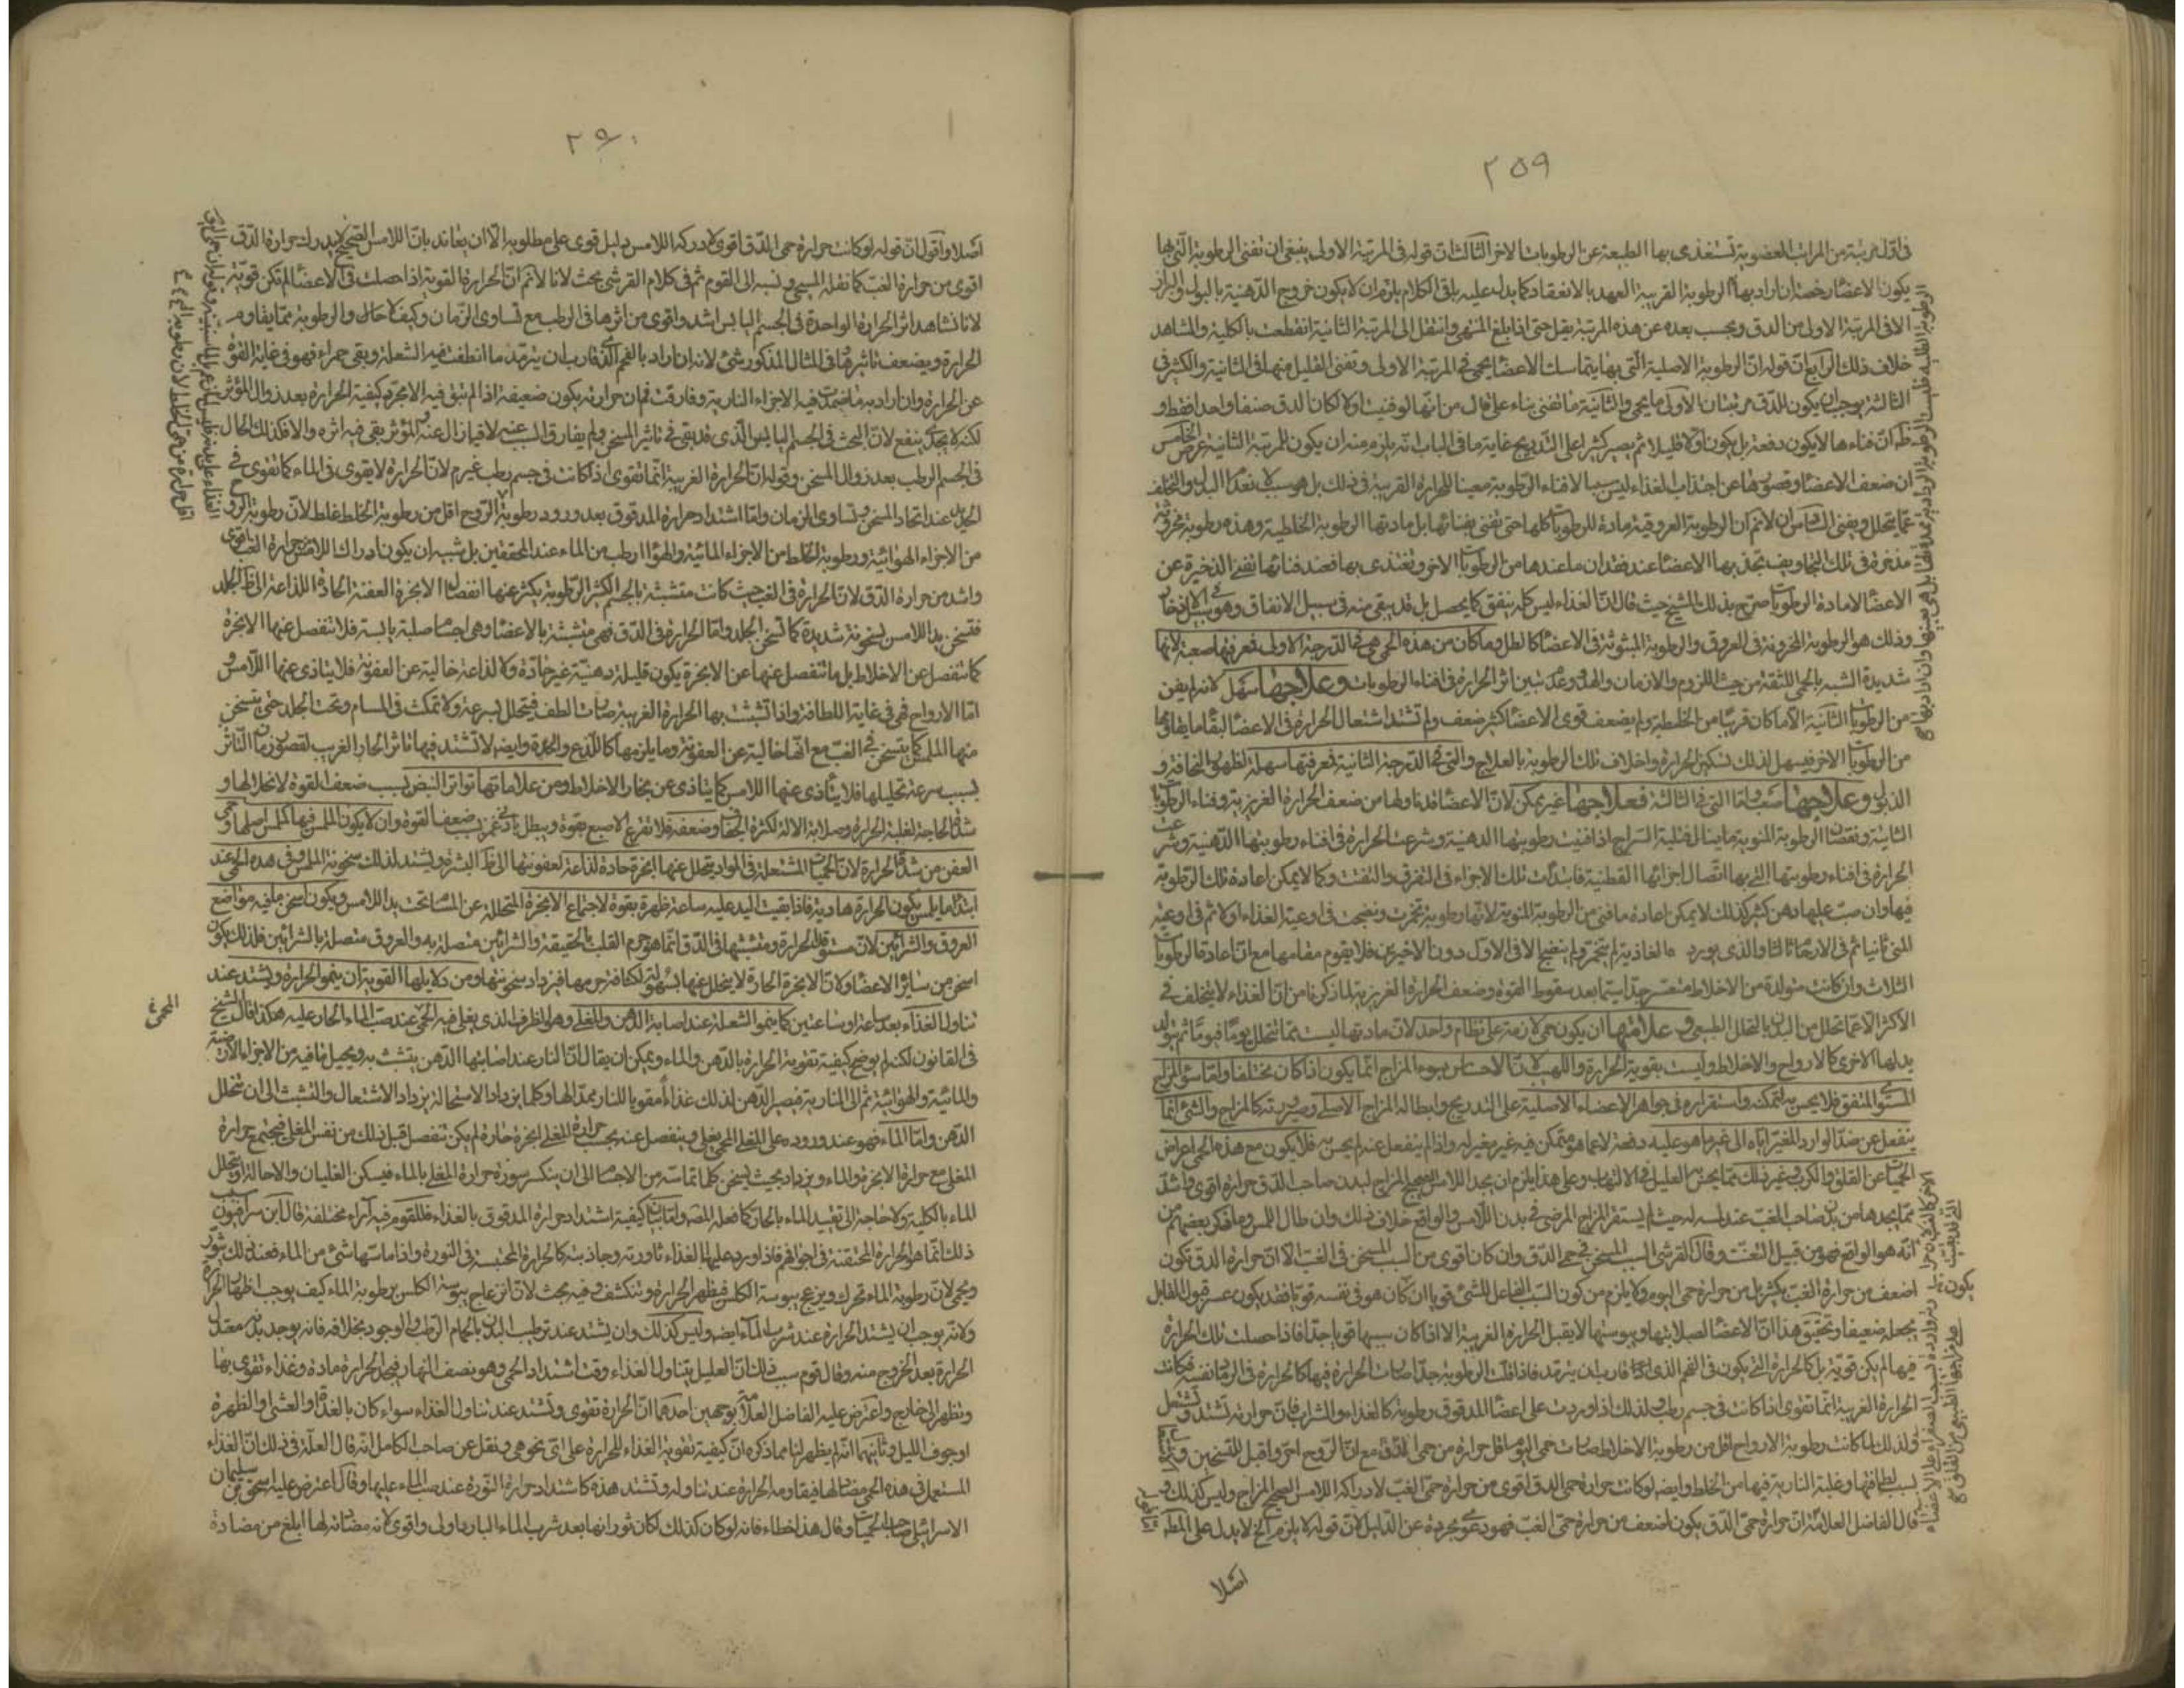 ٢٥٩
فى اول مرتبة من المراتب العضوية تستغذى بها الطبيعة عن الرطوبات الاخر الثالث ان قوله فى المرتبة الاولى ينبغى ان تفنى الرطوبة التى بها
يكون الاعضاء رخصة ان اراد بها الرطوبة القريبة العهد بالانعقاد كما يدل عليه باقى الكلام يلزم ان لا يكون خروج الدهنية بالبول والبراز
الا فى المرتبة الاولى من الدق ويجب بعده عن هذه المرتبة يقل حتى اذا بلغ المنتهى وانتقل الى المرتبة الثانية انقطعت بالكلية والمشاهد
خلاف ذلك الرابع ان قوله ان الرطوبة الاصلية التى بها يتماسك الاعضاء يحمى فى المرتبة الاولى وتفنى القليل منها فى الثانية والكثير فى
الثالثة يوجب ان يكون للدق مرتبتان الاولى ما يحمى والثانية ما تفنى بناء على قال من انها لو فنيت اولا كان الدق صنفا واحدا فقط و
ان فناءها لا يكون دفعة بل يكون اولا قليلا ثم يصير كثيرا على التدريج غاية ما فى الباب انه يلزم منه ان يكون للمرتبة الثانية عرض الخامس
ان ضعف الاعضاء وقصورها عن اجتذاب الغذاء ليس سببا لافناء الرطوبة معينا للحرارة الغريبة فى ذلك بل هو سبب لا نعدام البدل والتخلف
عما يتحلل ويفنى السادس ان لا نم ان الرطوبة العروقية مادة للرطوبات كلها حتى تفنى بفنائها بل مادتها الرطوبة الخلطية وهذه رطوبة
مذخرة فى تلك التجاويف تجذبها الاعضاء عند فقدان ما عندها من الرطوبات الاخر وتغتذى بها فعند فنائها تفنى الذخيرة عن
الاعضاء لا مادة الرطوبات صرح بذلك الشيخ حيث قال ان الغذاء ليس كله ينفق كما يحصل بل قد يبقى منه فى سبيل الانفاق وهو
وذلك هو الرطوبة المخزونة فى العروق والرطوبة المبثوثة فى الاعضاء كالطل وما كان من هذه الحمى هى فى الدرجة الاولى فمعرفتها صعبة لانها
شديدة الشبه بالحمى اللثقة من حيث اللزوم والازمان والهدو وعدم تبين اثر الحرارة فى افناء الرطوبات وعلاجها سهل لانه لم يفن
من الرطوبات الثانية الا ما كان قريبا من الخلطية ولم يضعف قوى الاعضاء كثير ضعف ولم تشتد اشتعال الحرارة فى الاعضاء لبقاء ما يقاومها
من الرطوبات الاخر فيسهل لذلك تسكين الحرارة واخلاف تلك الرطوبة بالعلاج والتى فى الدرجة الثانية فمعرفتها سهلة لظهور النحافة و
الذبول وعلاجها صعب واما التى فى الثالثة فعلاجها غير ممكن لان الاعضاء قد نالها من ضعف الحرارة الغريزية وفناء الرطوبات
الثانية ونقصان الرطوبة المنوية ما ينال فتيلة السراج اذا فنيت رطوبتها الدهنية وشرعت الحرارة فى افناء رطوبتها
الحرارة فى افناء رطوبتها التى بها اتصال اجزائها القطنية فابتدأت تلك الاجزاء فى التفرق والتفتت وكما لا يمكن اعادة تلك الرطوبة
فيها وان صب عليها دهن كثير كذلك لا يمكن اعادة ما فنى من الرطوبة المنوية لانها رطوبة تخمرت ونضجت فى اوعية الغذاء اولا ثم فى اوعية
المنى ثانيا ثم فى الارحام ثالثا والذى يورده الغاذية لم يتخمر ولم ينضج الا فى الاول دون الاخيرين فلا يقوم مقامها مع ان اعادة الرطوبات
الثلاث وان كانت متولدة من الاخلاط متعسر جدا سيما بعد سقوط القوة وضعف الحرارة الغريزية لما ذكرنا من ان الغذاء لا يتخلف فى
الاكثر الا عما تحلل من البدن بالتحلل الطبيعى وعلامتها ان يكون حمى لازمة على نظام واحد لان مادتها ليست مما تتحلل يوما فيوما ثم يتولد
بدلها الاخرى كالارواح والاخلاط وليست بقوية الحرارة واللهيب لان الاحساس بسوء المزاج انما يكون اذا كان مختلفا واما سوء المزاج
المستوى المتفق فلا يحس به لتمكنه واستقراره فى جواهر الاعضاء الاصلية على التدريج وابطاله المزاج الاصلى وصيرورته كالمزاج والشئ انما
ينفعل عن ضد الوارد المغير اياه الى غير ما هو عليه دفعة لا عما هو متمكن فيه غير مغير له واذا لم ينفعل عنه لم يحس به فلا يكون مع هذه الحمى اعراض
الحميات عن القلق والكرب وغير ذلك مما يحس العليل فى الالتهاب وعلى هذا يلزم ان يجد اللامس الصحيح المزاج لبدن صاحب الدق حرارة اقوى واشد
مما يجدها من بدن صاحب الغب عند لمسه له حيث لم يستقر المزاج المرضى فى بدن اللامس والواقع خلاف ذلك وان طال اللمس وما ذكر بعضهم من
انه هو الواقع فهو من قبيل التعنت وقال القرشى السبب المسخن فى حمى الدق وان كان اقوى من السبب المسخن فى الغب الا ان حرارة الدق تكون
اضعف من حرارة الغب بكثير بل من حرارة حمى اليوم ولا يلزم من كون السبب الفاعل للشئ قويا ان كان هو فى نفسه قويا فقد يكون عسر قبول القابل
يجعله ضعيفا وتحقيق هذا ان الاعضاء لصلابتها ويبوستها لا يقبل الحرارة الغريبة الا اذا كان سببها قويا جدا فاذا حصلت تلك الحرارة
فيها لم يكن قوية بل كالحرارة التى يكون فى الفحم الذى قارب ان يترمد فاذا قلت الرطوبة جدا صارت الحرارة فيها كالحرارة فى الرماد نفسه فكانت
الحرارة الغريبة انما تقوى اذا كانت فى جسم رطب ولذلك اذا وردت على اعضاء المدقوق رطوبة كالغذاء والشراب فان حرارته تشتد وتشتعل
ولذلك لما كانت رطوبة الارواح اقل من رطوبة الاخلاط صارت حمى اليوم اقل حرارة من حمى الدق مع ان الروح احر واقبل للتسخين
لسبب لطافتها وغلبة النارية فيها من الخلط وايضه لو كانت حرارة حمى الدق اقوى من حرارة حمى الغب لادراكه اللامس الصحيح المزاج وليس كذلك و
قال الفاضل العلامة ان حرارة حمى الدق يكون اضعف من حرارة حمى الغب فهو دعوى مجردة عن الدليل لان قوله لا يلزم الخ لا يدل على المطـ
اصلا
٢٦٠
اصلا واقول ان قوله لو كانت حرارة حمى الدق اقوى لادركه اللامس دليل قوى على مطلوبه الا ان يعاند بان اللامس الصحيح لا يدرك حرارة الدق
اقوى من حرارة الغب كما نقله المسيحى ونسبه الى القوم ثم فى كلام القرشى بحث لانا لا نم ان الحرارة القوية اذا حصلت فى الاعضاء لم تكن قوية
لانا نشاهد اثر الحرارة الواحدة فى الجسم اليابس اشد واقوى من اثرها فى الرطب مع تساوى الزمان وكيف لا حال والرطوبة مما يقاوم
الحرارة ويضعف تاثيرها وفى المثال المذكور شئ لانه ان اراد بالفحم الذى قارب ان يترمد ما انطفت فيه الشعلة وبقى حمراء فهو فى غاية القوة
عن الحرارة وان اراد به ما ضمدت فيه الاجزاء النارية وفارقت فان حرارته يكون ضعيفة اذا لم تبق فيه الا مجرد كيفية الحرارة بعد زوال المؤثر
لكنه لا يجدى بنفع لان البحث فى الجسم اليابس الذى قد بقى فى تاثير المسخن ولم يفارق السبب عنه لا فيما زال عنه المؤثر وبقى فيه اثره والا فكذلك الحال
فى الجسم الرطب بعد زوال المسخن وقوله ان الحرارة الغريبة انما تقوى اذا كانت فى جسم رطب غير م لان الحرارة لا يقوى فى الماء كما تقوى فى
عند اتحاد المسخن وتساوى الزمان واما اشتداد حرارة المدقوق بعد ورود رطوبة الروح اقل من رطوبة الخلط غلط لان رطوبة الروح
من الاجزاء الهوائية ورطوبة الخلط من الاجزاء المائية والهواء ارطب من الماء عند المحققين بل شبه ان يكون ادراك اللامس حرارة الغب اقوى
واشد من حرارة الدق لان الحرارة فى الغب حيث كانت متشبثة بالجسم الكثير الرطوبة يكثر عنها انفصال الابخرة العفنة الحادة اللذاعة الى ظاهر الجلد
فتسخن يد اللامس سخونة شديدة كما تسخن الجلد واما الحرارة فى الدق فهى متشبثة بالاعضاء وهى اجسام صلبة يابسة فلا تنفصل عنها الابخرة
كما تنفصل عن الاخلاط بل ما تنفصل عنها عن الابخرة يكون قليلة دهنية غير حادة ولا لذاعة خالية عن العفونة فلا يتاذى عنها اللامس و
اما الارواح فهى فى غاية اللطافة واذا تشبثت بها الحرارة الغريبة صارت الطف فيتحلل بسرعة ولا تمكث فى المسام وتحت الجلد حتى يتسخن
منها الملمس كما يتسخن فى الغب مع انها خالية عن العفونة وما يلزمها كاللذع والحدة وايضه لا تشتد فيها تاثير الحار الغريب لقصور زمان التاثر
بسبب سرعة تحليلها فلا يتاذى عنها اللامس كما يتاذى عن بخار الاخلاط ومن علاماتها تواتر النبض بسبب ضعف القوة لانحلالها و
شدة الحاجة لغلبة الحرارة وصلابة الالة لكثرة الجفاف وضعفه فلا تقرع الاصبع بقوة ويبطل بادنى غمز بسبب ضعف القوة وان لا يكون الملمس فيها كالملمس اصلها و
العفن من شدة الحرارة لان الحميات المشتعلة فى المواد يتحلل عنها ابخرة حادة لذاعة لعفونتها الى ظاهر البشرة ويشتد لذلك سخونة الملمس وفى هذه الحمى عند
ابتداء ما يلمس يكون الحرارة هادية فاذا بقيت اليد عليه ساعة ظهرت بقوة لاجتماع الابخرة المتحللة عن المسام تحت يد اللامس ويكون اسخن ما فيه مواضع
العروق والشرائين لان مستوقد الحرارة ومتشبثها فى الدق انما هو جرم القلب بالحقيقة والشرائين متصلة به والعروق متصلة بالشرائين فلذلك يكون
اسخن من سائر الاعضاء ولان الابخرة الحارة لا ينحلل عنها بسهولة لكثافة جرمها فيزداد سخونتها ومن دلايلها القوية ان ينمو الحرارة ويشتد عند
تناول الغذاء بعد ساعة او ساعتين كما ينمو الشعلة عند اصابة الدهن والمقلى وهو الظرف الذى يغلى فيه المحمى عند صب الماء الحار عليه هكذا قال الشيخ
فى القانون لكنه لم يوضح كيفية تقوية الحرارة بالدهن والماء ويمكن ان يقال ان النار عند اصابتها الدهن يتشبث به ويحيل ما فيه من الاجزاء الارضية
والمائية والهوائية ثم الى النارية فيصير الدهن لذلك غذاء مقويا للنار ممدا لها وكلما يزداد الاستحالة يزداد الاشتعال والتشبث الى ان تتحلل
الدهن واما الماء فهو عند وروده على المقلى المحمى يغلى وينفصل عنه بحسب حرارة المقلى ابخرة حارة لم يكن تنفصل قبل ذلك من نفس المقلى فيجتمع حرارة
المقلى مع حرارة الابخرة والماء ويزداد بحيث يسخن كلما تماسه من الاجسام الى ان ينكسر سورة حرارة المقلى بالماء فيسكن الغليان والاحالة او يتحلل
الماء بالكلية ولا حاجة الى تقييد الماء بالحار كما فعله المصـ واما بيان كيفية اشتداد حرارة المدقوق بالغذاء فللقوم فيه آراء مختلفة قال ابن سرافيون
ذلك انما هو الحرارة المختفية فى اجوافهم فاذا ورد عليها الغذاء ثاورته وجاذبته كالحرارة المحتبسة فى النورة واذا ماستها شئ من الماء فعند ذلك يثور
ويحمى لان رطوبة الماء تحرك ويزعج يبوسة الكلس فيظهر الحرارة وتنكشف وفيه بحث لان انزعاج يبوسة الكلس برطوبة الماء كيف يوجب اظهار الحرارة
ولانه يوجب ان يشتد الحرارة عند شرب الماء ايضه وليس كذلك وان يشتد عند ترطيب البدن بالحمام الرطب والوجود بخلافه فانه يوجد بدنه معتدل
الحرارة بعد الخروج منه وقال قوم سبب ذلك ان العليل يتناول الغذاء وقت اشتداد الحمى وهو نصف النهار فيجد الحرارة مادة وغذاء تقوى بها
وتظهر الى خارج واعترض عليه الفاضل العلامة بوجهين احدهما ان الحرارة تقوى وتشتد عند تناول الغذاء سواء كان بالغداة او العشى او الظهيرة
او جوف الليل وثانيهما انه لم يظهر لنا مما ذكره ان كيفية تقوية الغذاء للحرارة على اى نحو هى ونقل عن صاحب الكامل انه قال العلة فى ذلك ان الغذاء
المستعمل فى هذه الحمى مضاد لها فيقاومه الحرارة عند تناوله وتشتد هذه كاشتداد حرارة النورة عند صب الماء عليها وقال اعترض عليه اسحق بن سليمان
الاسرائيلى صاحب الحميات وقال هذا خطاء فانه لو كان كذلك لكان ثورانها بعد شرب الماء البارد اولى واقوى لانه مضادته لها ابلغ من مضادة